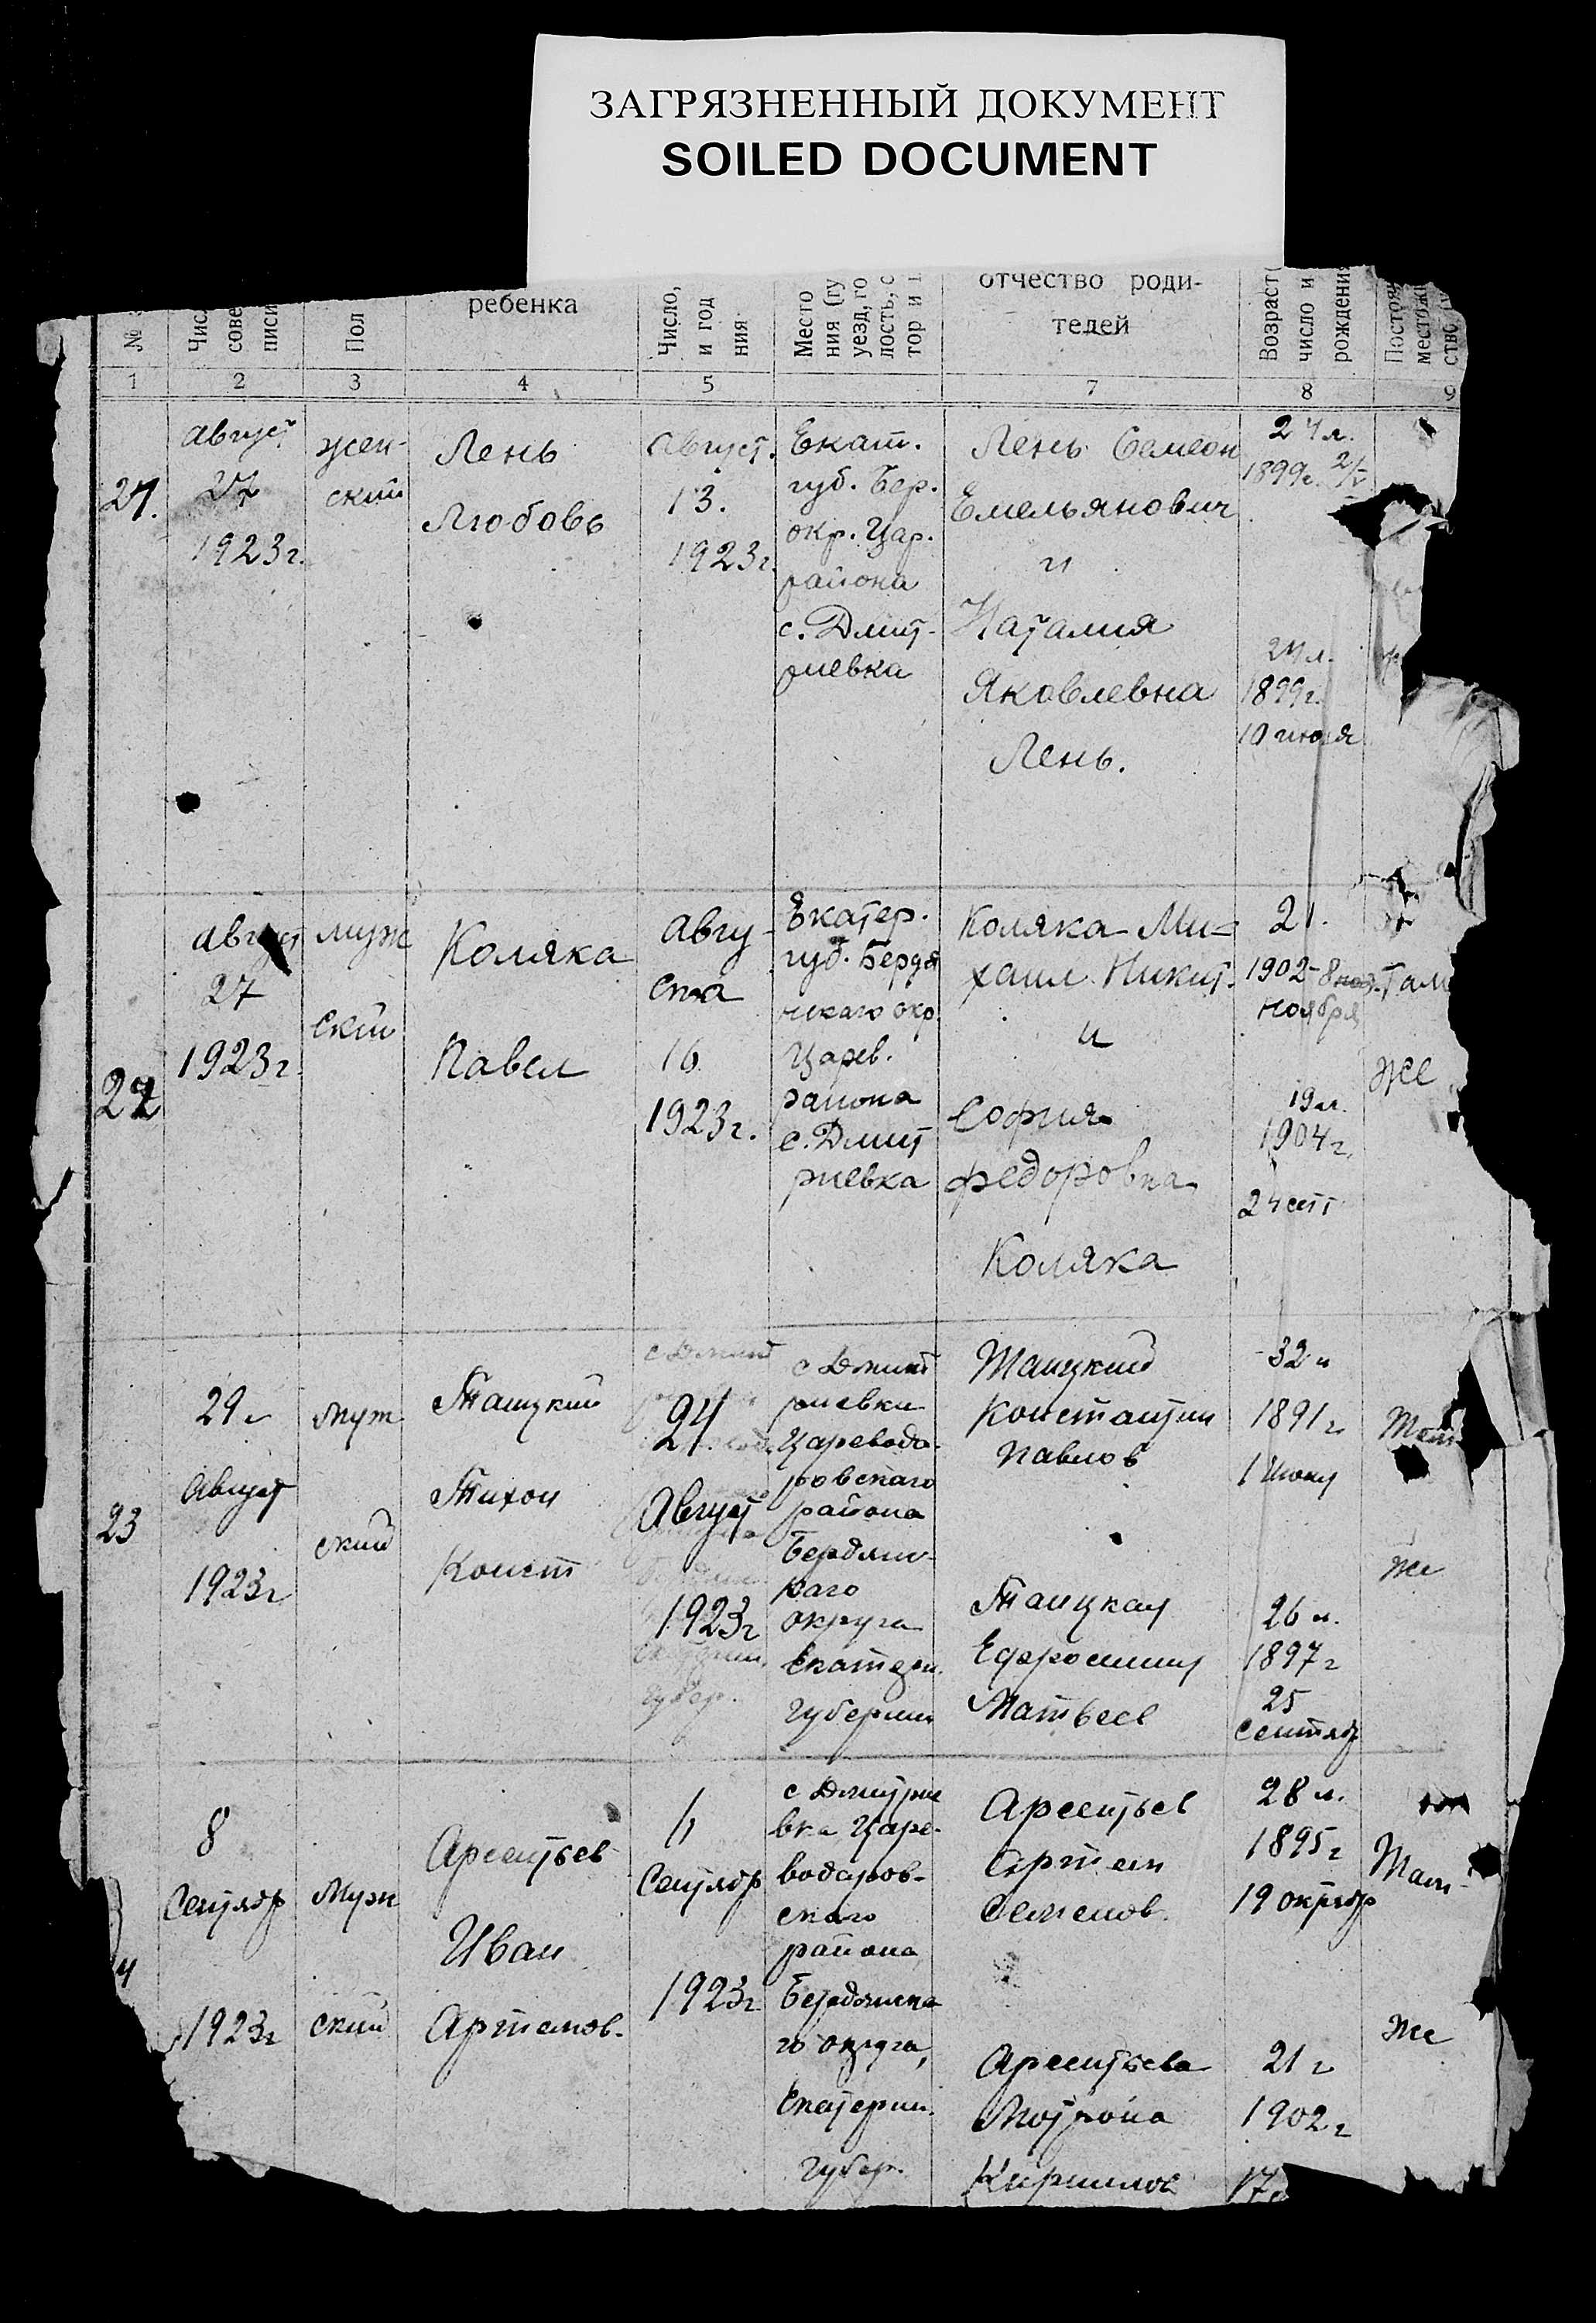 ЗАГРЯЗНЕННЫЙ ДОКУМЕНТ
SOILED DOCUMENT
№
сове
писи
Пол
ребенка
Число,
и год
ния
Место
ния (гу
уезд, го
лость, с
тор и
отчество роди-
телей
Возраст
число и
рождения
1
2
3
4
5
7
8
9
27.
август
27
1923г.
жен-
ский
Лень
Любовь
Август.
13.
1923г.
Екат.
губ. Бер.
окр. Цар.
района
с. Дмит-
риевка
Лень Семеон
Емельянович
и
Наталия
Яковлевна
Лень.
24 л.
1899г.
24 л.
1899г.
10 июля
22
август
27
1923г.
муж
ский
Коляка
Павел
Авгу-
ста
16
1923г.
Екатер.
губ. Бердя
нскаго окр.
Царев.
района
с. Дмит
риевка
Коляка Ми-
хаил Никит.
и
София
Федоровна
Коляка
21.
1902-8
ноября
19 л.
1904г.
24 сент
Там
же
23
29 г
Август
1923г
муж
ский
Таицкий
Тихон
Конст
24
Август
1923г
с Дмит
риевки
Царевода-
ровскаго
района
Бердянс-
каго
округа
Екатерин.
губернии
Таицкий
Константин
Павлов
Таицкая
Ефросиния
Матвеев
32 л
1891г
1 Июня
26 л.
1897г
25
Сентябр
Там
же
4
8
Сентябр
1923г
Муж
ский
Арсентьев
Иван
Артемов.
6
Сентябр
1923г
с Дмитрие
вка Царе-
водаров-
скаго
района
Бердянска
го округа,
Екатерин.
Губер.
Арсентьев
Артем
Семенов.
Арсентьева
Мотрона
Кирилов
28 л.
1895г
19 октябр
21 г
1902г
17
Там
же